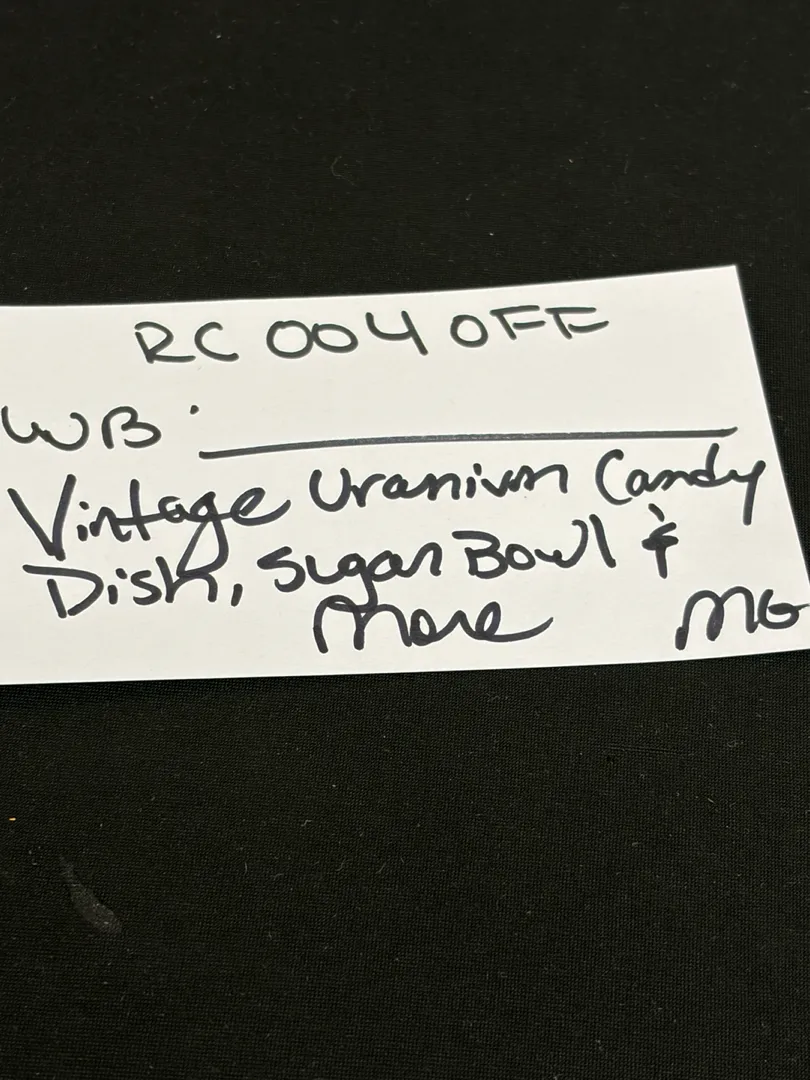 RC 004 OFF
WB: ____________
Vintage Uranium Candy
Dish, Sugar Bowl &
More MG